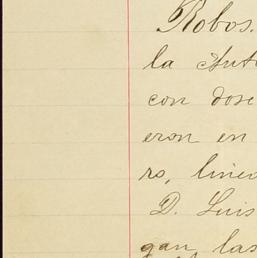 Robos.
la Auto
con dose
eron en
rs, linea
D. Luis
gan las